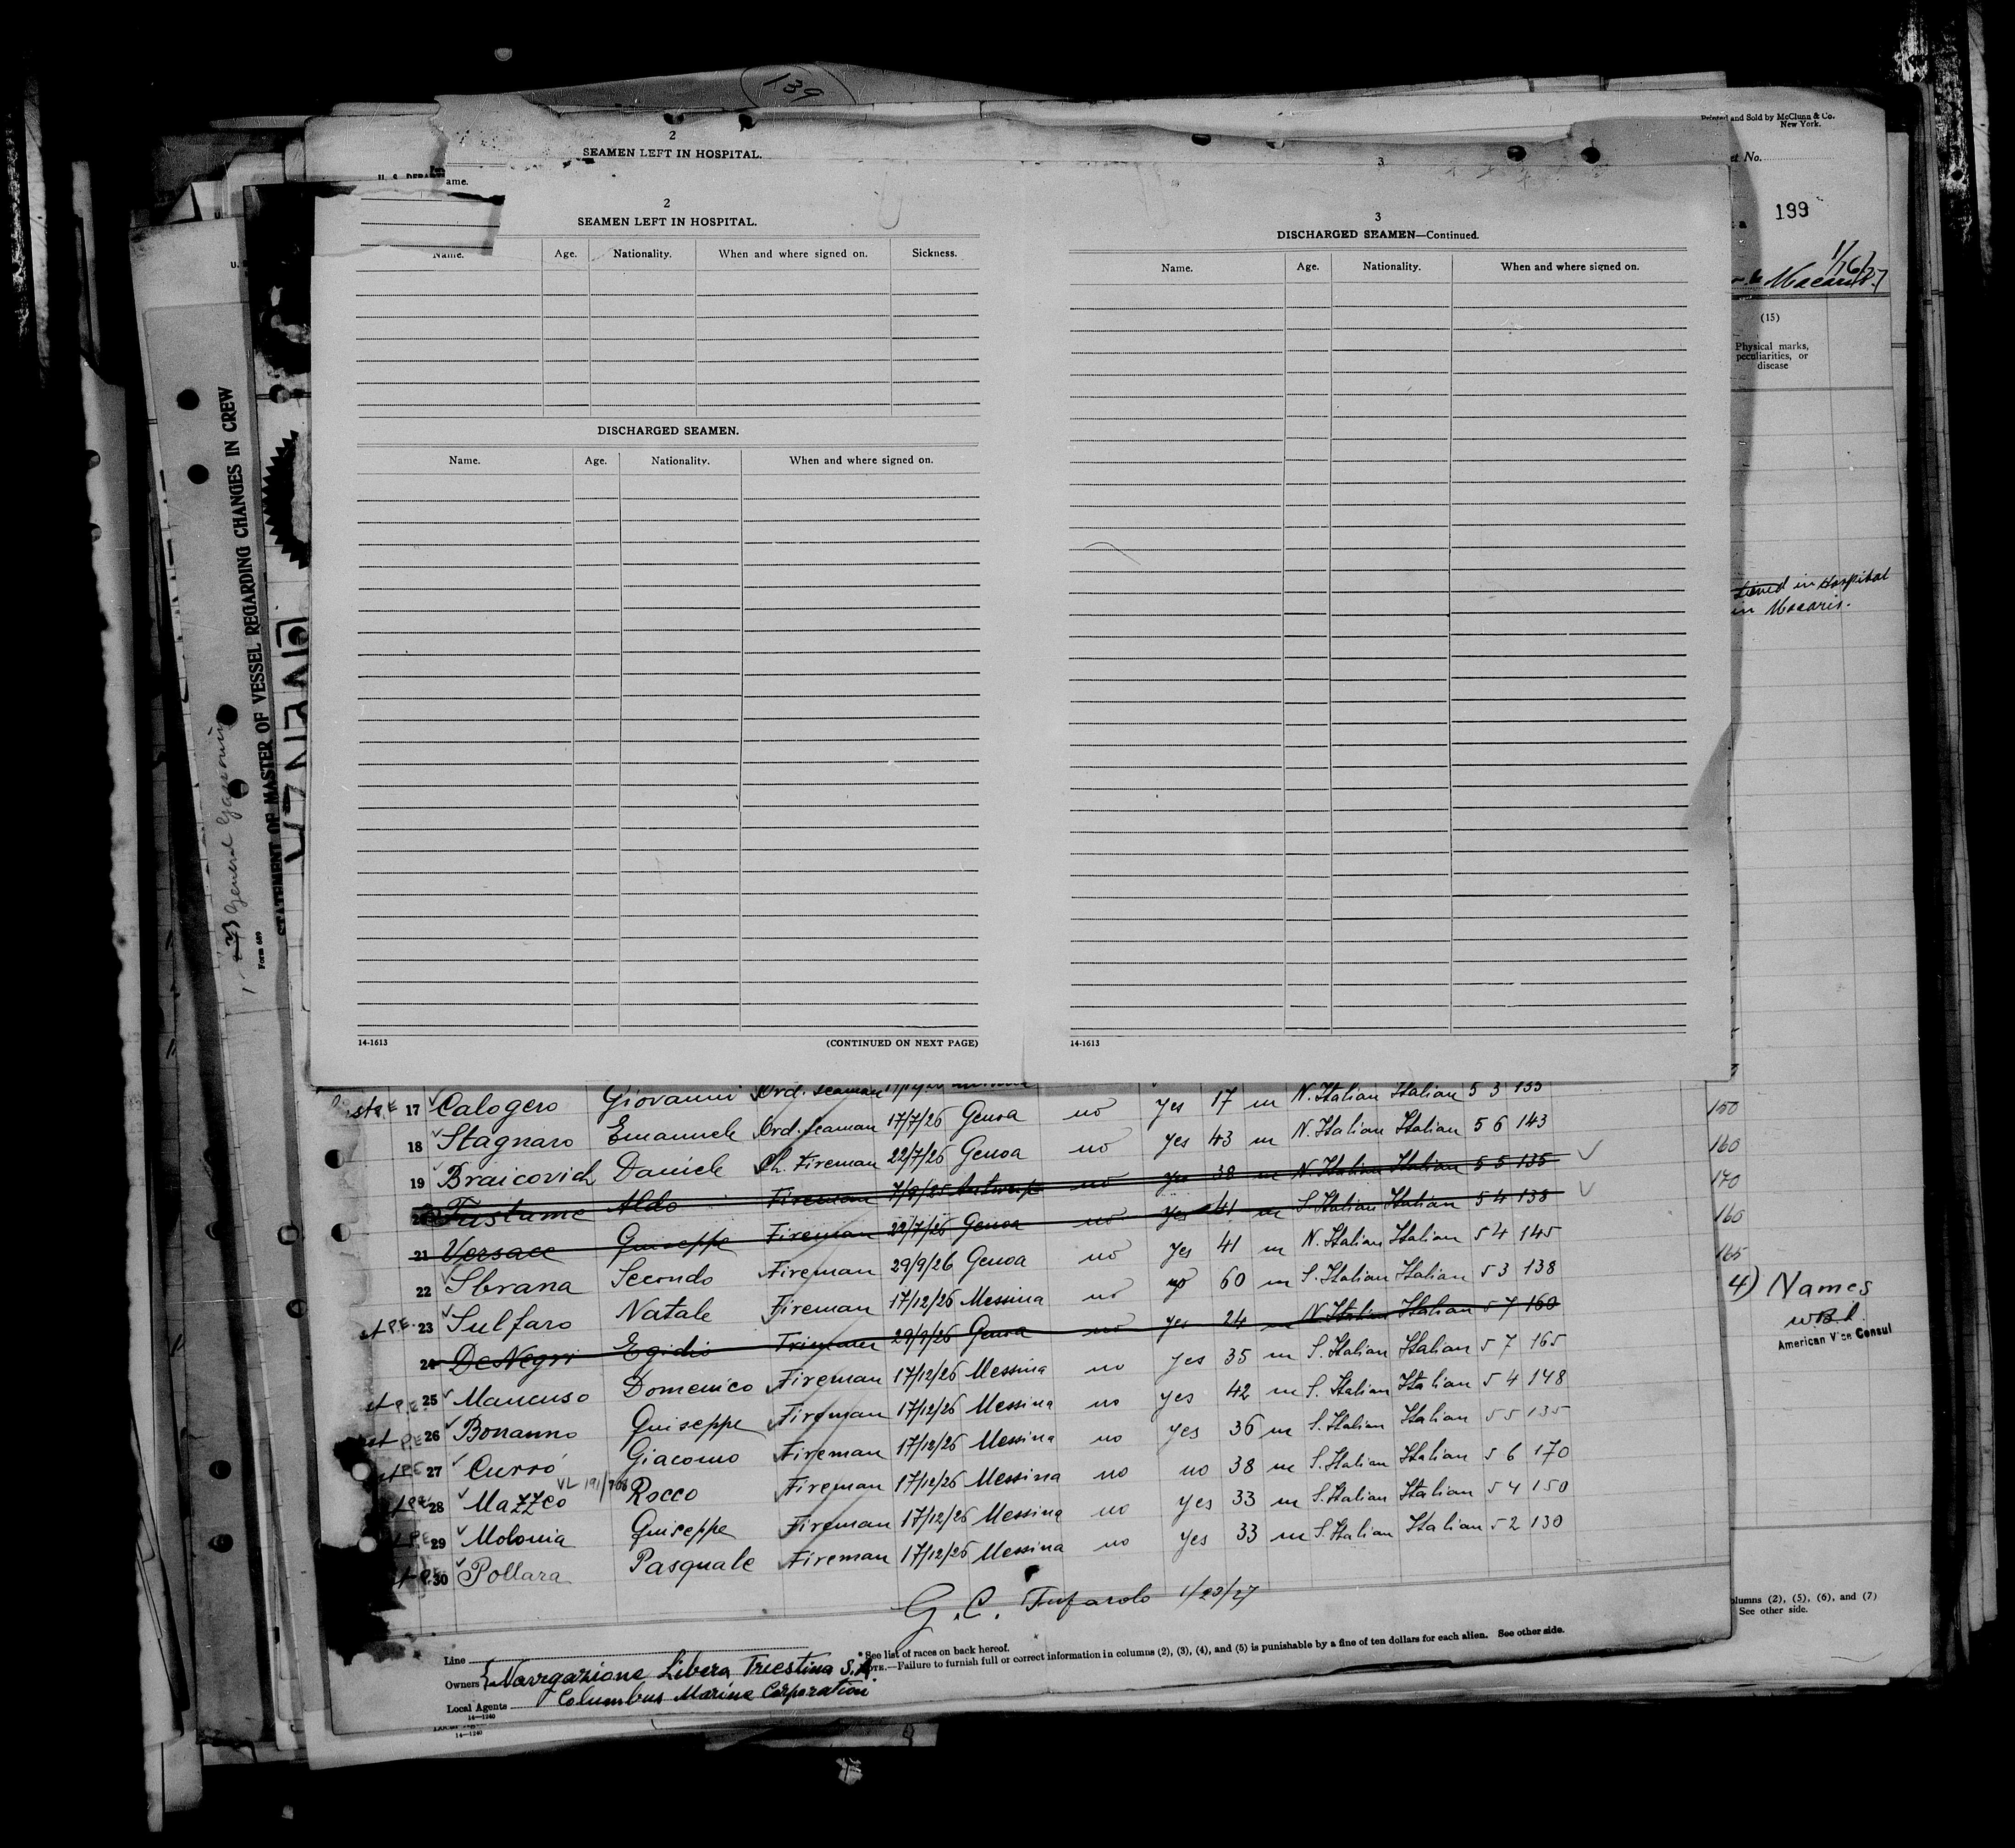 139
2
SEAMEN LEFT IN HOSPITAL.
3
ame.
2
SEAMEN LEFT IN HOSPITAL.
Name. Age. Nationality. When and where signed on. Sickness.
DISCHARGED SEAMEN.
Name. Age. Nationality. When and where signed on.
14-1613 (CONTINUED ON NEXT PAGE)
3
DISCHARGED SEAMEN—Continued.
Name. Age. Nationality. When and where signed on.
14-1613
Printed and Sold by McClunn & Co.
New York.
et No.
199
(15)
Physical marks,
peculiarities, or
disease
in Hospital
in Macoris.
STATEMENT OF MASTER OF VESSEL REGARDING CHANGES IN CREW
Form 689
17 Calogero Giovanni Ord. Seaman yes 17 m N. Italian Italian 5 3 133
18 Stagnaro Emanuele Ord. Seaman 17/7/26 Genoa no yes 43 m N. Italian Italian 5 6 143
19 Braicovich Daniele Ch. Fireman 22/7/26 Genoa no yes 38 m N. Italian Italian 5 5 135
20 Aldo Fireman 7/9/25 Antwerp no yes 41 m S. Italian Italian 5 4 138
21 Versace Guiseppe Fireman 22/7/26 Genoa no yes 41 m N. Italian Italian 5 4 145
22 Sbrana Secondo Fireman 29/9/26 Genoa no 60 m S. Italian Italian 5 3 138
P.E. 23 Sulfaro Natale Fireman 17/12/26 Messina no yes 24 m N. Italian Italian 5 7 160
24 De Negri Egidio Trimmer 29/9/26 Genoa no yes 35 m S. Italian Italian 5 7 165
P.E. 25 Mancuso Domenico Fireman 17/12/26 Messina no yes 42 m S. Italian Italian 5 4 148
P.E. 26 Bonanno Guiseppe Fireman 17/12/26 Messina no yes 36 m S. Italian Italian 5 5 135
P.E. 27 Curró Giacomo Fireman 17/12/26 Messina no no 38 m S. Italian Italian 5 6 170
P.E. 28 Mazzeo Rocco Fireman 17/12/26 Messina no yes 33 m S. Italian Italian 5 4 150
P.E. 29 Molonia Guiseppe Fireman 17/12/26 Messina no yes 33 m S. Italian Italian 5 2 130
P.E. 30 Pollara Pasquale Fireman 17/12/26 Messina no
150
160
170
160
165
4) Names
American Vice Consul
G. C. Tufarolo 1/20/27
columns (2), (5), (6), and (7)
See other side.
Line
* See list of races on back hereof.
NOTE.—Failure to furnish full or correct information in columns (2), (3), (4), and (5) is punishable by a fine of ten dollars for each alien. See other side.
Owners Navigazione Libera Triestina S.A.
Local Agents Columbus Marine Corporation
14—1240
14—1240